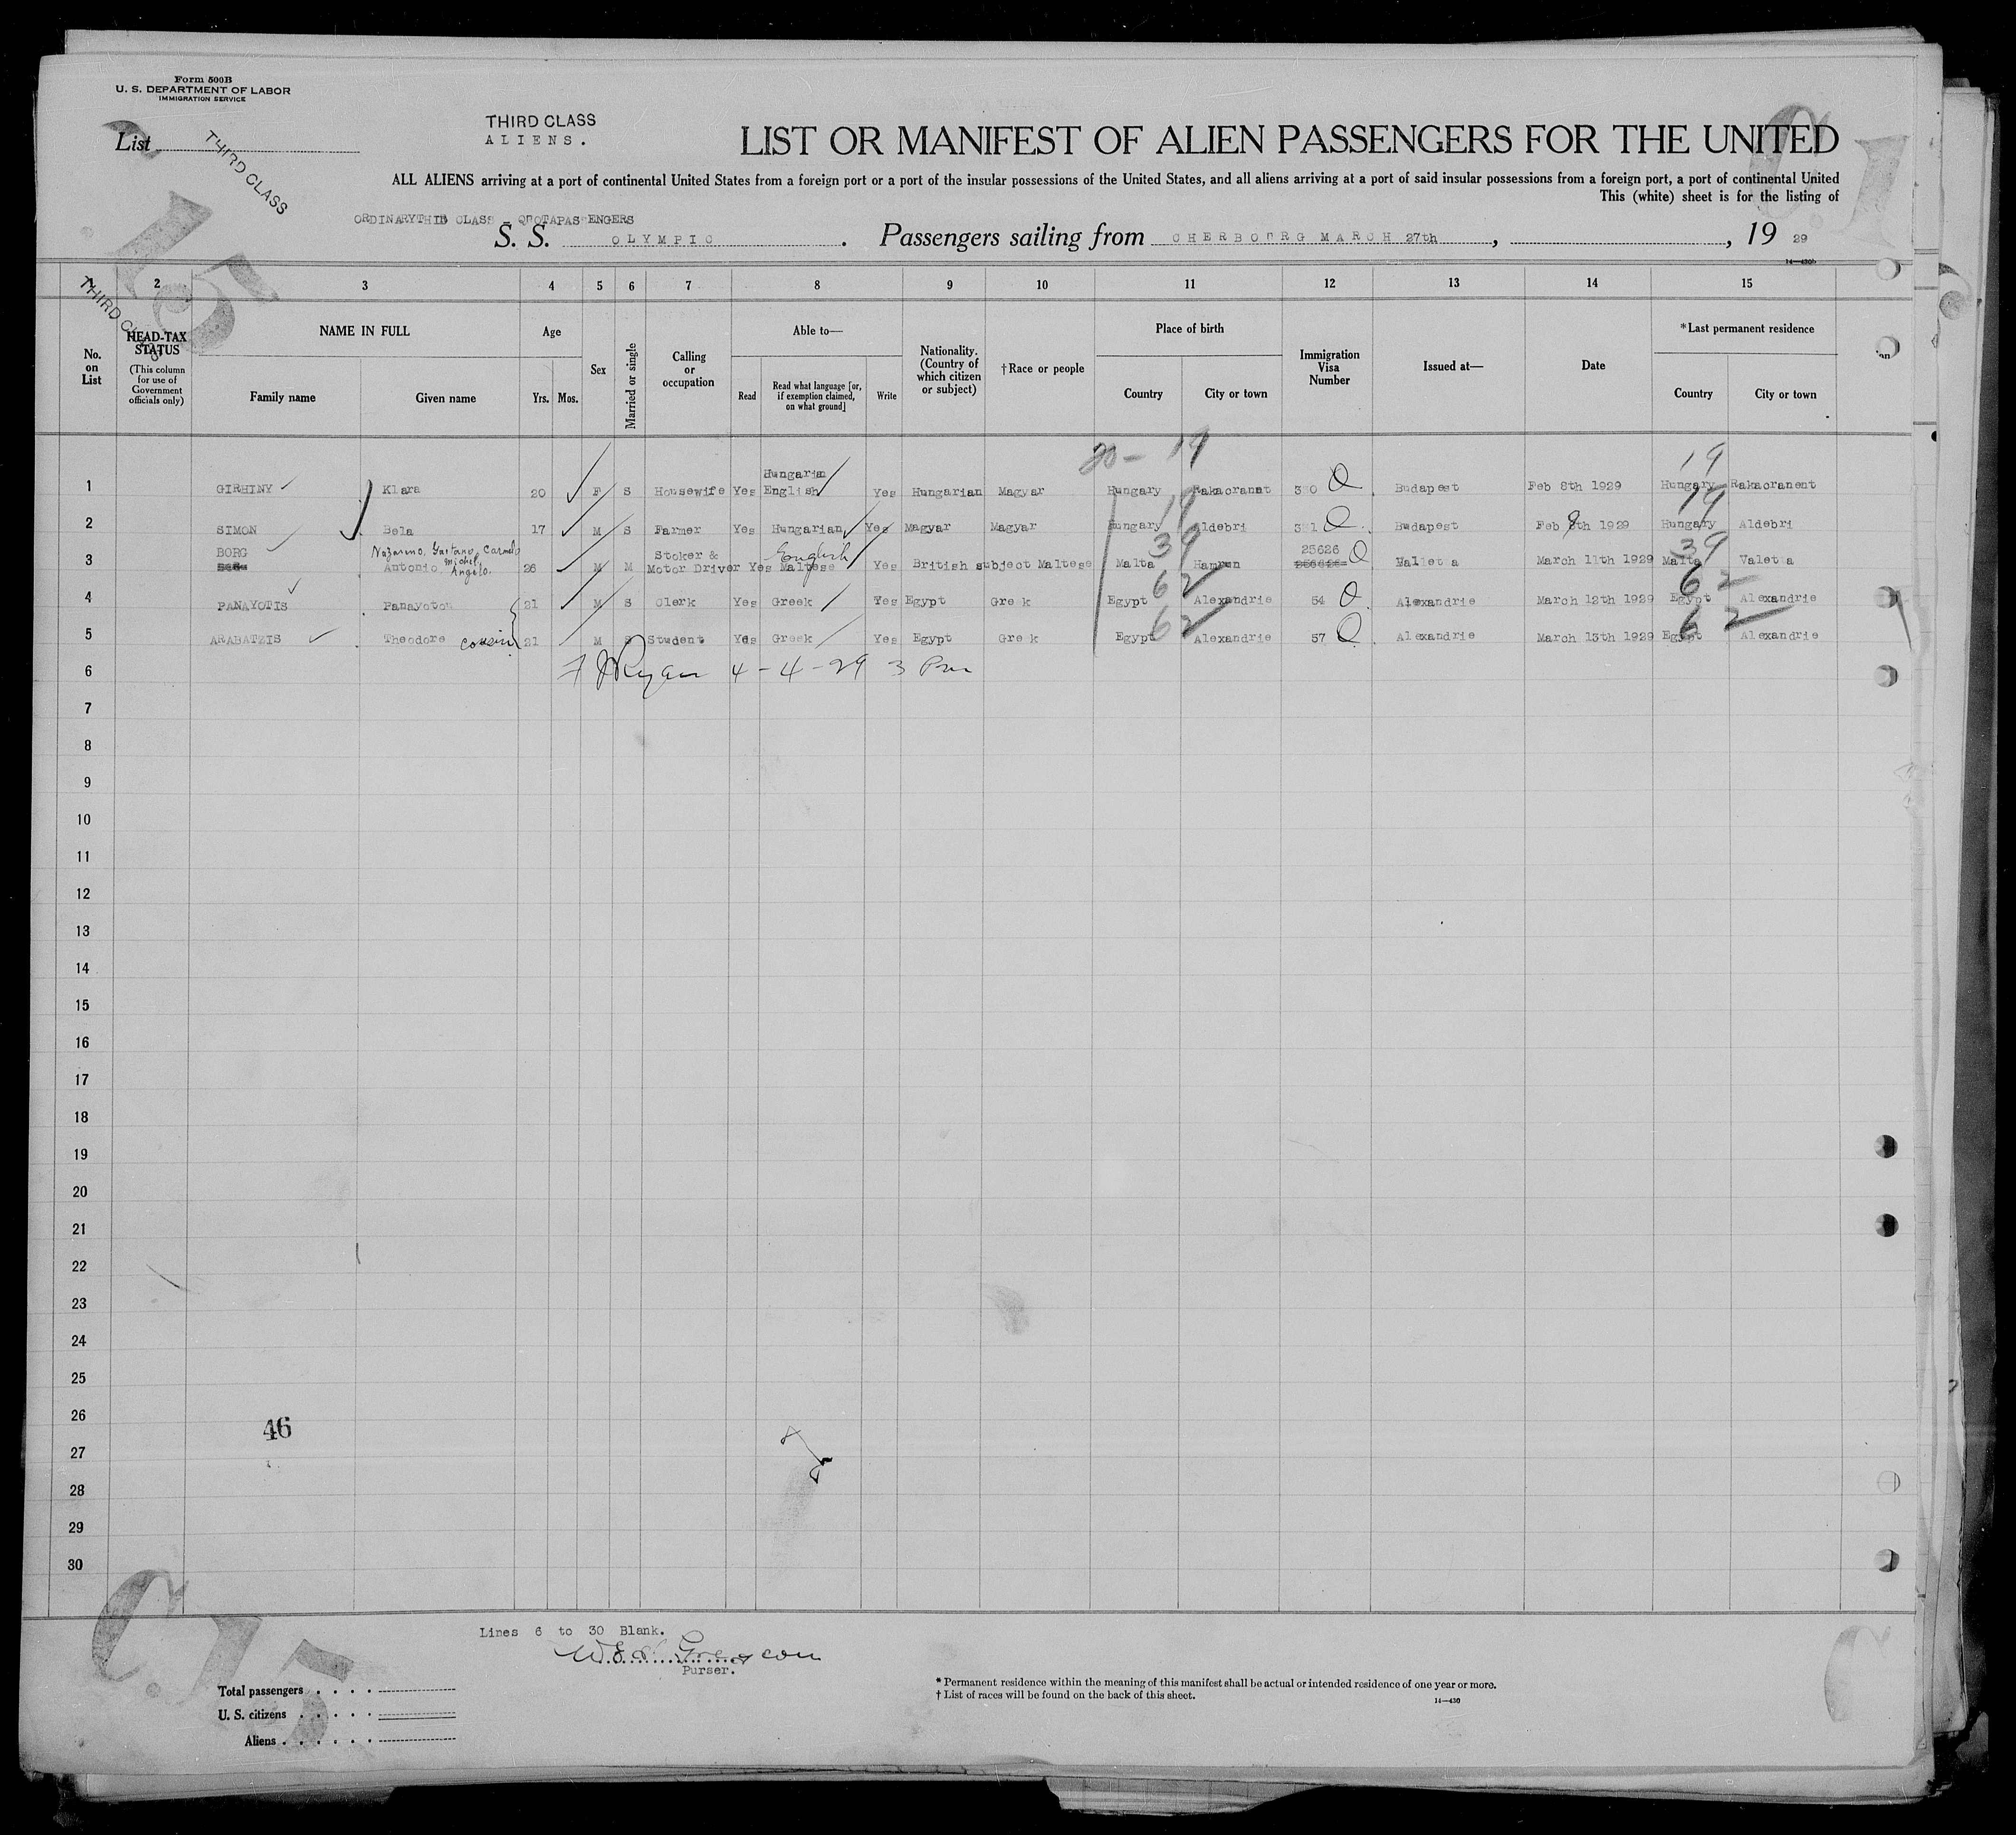 Form 500B
U. S. DEPARTMENT OF LABOR
IMMIGRATION SERVICE
List
THIRD CLASS
THIRD CLASS
ALIENS.
LIST OR MANIFEST OF ALIEN PASSENGERS FOR THE UNITED
ALL ALIENS arriving at a port of continental United States from a foreign port or a port of the insular possessions of the United States, and all aliens arriving at a port of said insular possessions from a foreign port, a port of continental United
This (white) sheet is for the listing of
ORDINARYTHID CLASS - QUOTAPASSENGERS
S. S. OLYMPIC . Passengers sailing from CHERBOURG MARCH 27th , , 19 29
14—430b
1 2 3 4 5 6 7 8 9 10 11 12 13 14 15
THIRD CLASS
No. on List
HEAD-TAX STATUS
(This column for use of Government officials only)
NAME IN FULL
Family name Given name
Age
Yrs. Mos.
Sex
Married or single
Calling or occupation
Able to—
Read Read what language [or, if exemption claimed, on what ground] Write
Nationality. (Country of which citizen or subject)
†Race or people
Place of birth
Country City or town
Immigration Visa Number
Issued at—
Date
*Last permanent residence
Country City or town
20 - 19 19
1 GIRHINY Klara 20 F S Housewife Yes Hungarian English Yes Hungarian Magyar Hungary Rakacranat 330 Q Budapest Feb 8th 1929 Hungary Rakacranent
19 19
2 SIMON Bela 17 M S Farmer Yes Hungarian Yes Magyar Magyar Hungary Aldebri 331 Q Budapest Feb 8th 1929 Hungary Aldebri
39 39
3 BORG Nazareno, Gaetano, Carmelo Antonio Michel, Angelo. 26 M M Stoker & Motor Driver Yes English Maltese Yes British subject Maltese Malta Hamrun 25626 Q Valletta March 11th 1929 Malta Valetta
62 62
4 PANAYOTIS Panayotou 21 M S Clerk Yes Greek Yes Egypt Greek Egypt Alexandrie 54 Q Alexandrie March 12th 1929 Egypt Alexandrie
62 62
5 ARABATZIS Theodore cousin 21 M S Student Yes Greek Yes Egypt Greek Egypt Alexandrie 57 Q Alexandrie March 13th 1929 Egypt Alexandrie
6 F J Ryan 4-4-29 3 Pm
7
8
9
10
11
12
13
14
15
16
17
18
19
20
21
22
23
24
25
26
46
27
28
29
30
C15
Lines 6 to 30 Blank.
Purser.
Total passengers
U. S. citizens
Aliens
* Permanent residence within the meaning of this manifest shall be actual or intended residence of one year or more.
† List of races will be found on the back of this sheet.
14—430